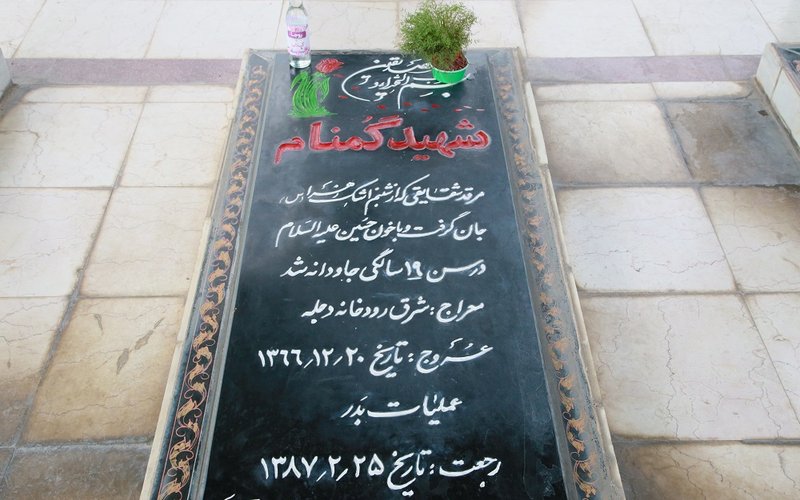 بسم رب الشهداء و الصدیقین
شهید گمنام
مرقد شقایقی که از شبنم اشک زهرا (س)
جان گرفت و با خون حسین علیه السلام
در سن ۱۹ سالگی جاودانه شد
معراج: شرق رودخانه دجله
عروج: تاریخ ۱۳۶۶٫۱۲٫۲۰
عملیات بَدر
رجعت: تاریخ ۱۳۸۷٫۲٫۲۵